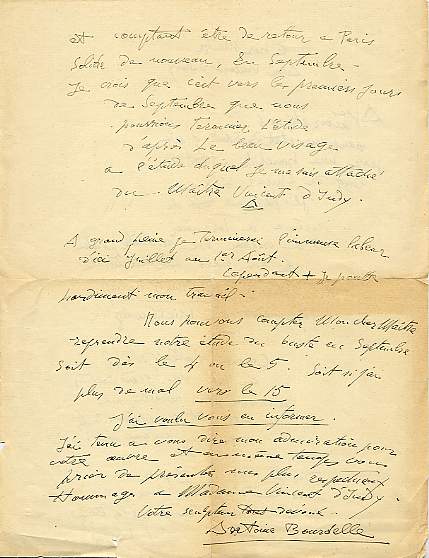 et comptant être de retour à Paris
de nouveau, En Septembre -
Je crois que c'est vers les premiers jours
de Septembre que nous
pourrions Terminer L'étude
d'après Le beau visage
a l'étude duquel je me suis attaché
du - Maître Vincent d'Indy.
A grand peine je Terminerai l'immense labeur
d'ici Juillet au 1er Août.
Cependant + Je
hardiment mon travail -
Nous pouvons compter Mon cher Maître
reprendre notre étude du buste en Septembre
soit dès le 4 ou le 5. Soit si j'ai
plus de mal vers le 15
J'ai voulu vous en informer.
J'ai tenu a vous dire mon admiration pour
votre œuvre et en même temps vous
prier de présenter mes plus respectueux
Hommages a Madame Vincent d'Indy.
Votre sculpteur tout dévoué.
Antoine Bourdelle